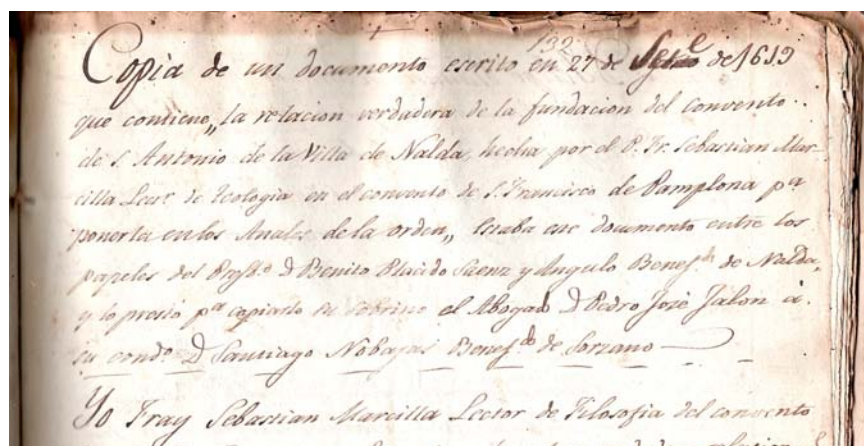 132
Copia de un documento escrito en 27 de Sete de 1619
que contiene „la relacion verdadera de la fundacion del convento
de S. Antonio de la Villa de Nalda, hecha por el P. Fr. Sebastian Mar
cilla Lect.r de Teologia en el convento de S. Francisco de Pamplona p.a
ponerla en los Anales de la orden„ Estaba ese documento entre los
papeles del Presb.o D Benito Placido Saenz y Angulo Benef.do de Nalda,
y lo prestó p.a copiarlo su sobrino el Abogado D Pedro José Jalon á
su cond.o D Santiago Nobajas Benef.do de Sorzano
Yo Fray Sebastian Marcilla Lector de Filosofia del convento